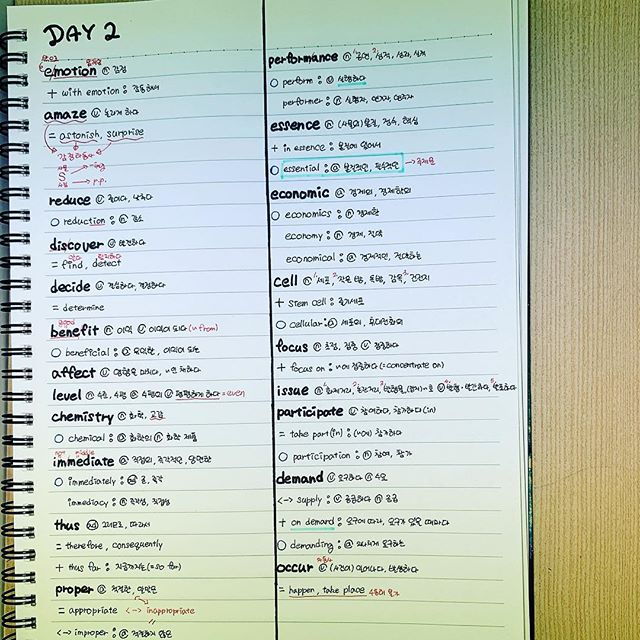 DAY 2
emotion ⓝ 감정
+ with emotion : 감동하여
amaze ⓥ 놀라게 하다
= astonish, surprise
감정동사
S → ing
→ p.p.
reduce ⓥ 줄이다, 낮추다
○ reduction : ⓝ 감소
discover ⓥ 발견하다
= find, detect
decide ⓥ 결심하다, 결정하다
= determine
good
benefit ⓝ 이익 ⓥ 이익이 되다 (from)
○ beneficial : ⓐ 유익한, 이익이 되는
affect ⓥ 영향을 미치다, ~인 체하다
level ⓝ 수준, 수평 ⓐ 수평의 ⓥ 평평하게 하다 = even
chemistry ⓝ 화학, 교감
○ chemical : ⓐ 화학의 ⓝ 화학 제품
not middle
immediate ⓐ 직접의, 즉각적인, 당면한
○ immediately : ⓐⓓ 곧, 즉각
immediacy : ⓝ 즉각성, 직접성
thus ⓐⓓ 그러므로, 따라서
= therefore, consequently
+ thus far : 지금까지는 (= so far)
proper ⓐ 적절한, 알맞은
= appropriate <-> inappropriate
<-> improper : ⓐ 적절하지 않은
performance ⓝ ¹공연, ²실적, 성과, 성적
○ perform : ⓥ 실행하다
performer : ⓝ 실행자, 연기자, 연주자
essence ⓝ (사물의) 본질, 정수, 핵심
+ in essence : 본질에 있어서
○ essential : ⓐ 본질적인, 필수적인
economic ⓐ 경제의, 경제학의
○ economics : ⓝ 경제학
economy : ⓝ 경제, 절약
economical : ⓐ 경제적인, 절약하는
cell ⓝ ¹세포, ²작은 방, 독방, 감옥, ³건전지
+ stem cell : 줄기세포
○ cellular : ⓐ 세포의, 휴대전화의
focus ⓝ 초점, 집중 ⓥ 집중하다
+ focus on : ~에 집중하다 (= concentrate on)
issue ⓝ
participate ⓥ 참여하다, 참가하다 (in)
= take part (in) : (~에) 참가하다
○ participation : ⓝ 참여, 참가
demand ⓥ 요구하다 ⓝ 수요
<-> supply : ⓥ 공급하다 ⓝ 공급
+ on demand : 요구에 따라, 요구가 있을 때마다
○ demanding : ⓐ 지나치게 요구하는
자동사
occur ⓥ (사건이) 일어나다, 발생하다
= happen, take place 수동태 불가